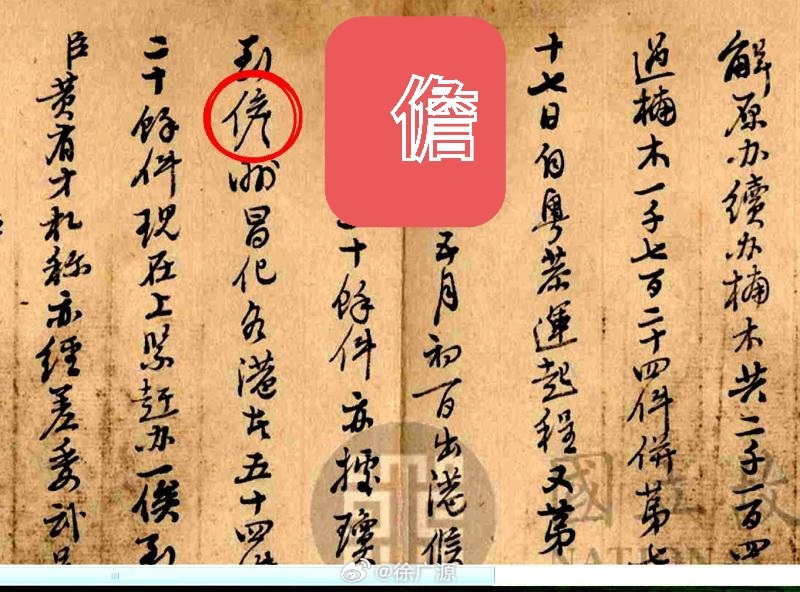 解原办续办楠木共二千一百四
过楠木一千七百二十四件併第七
十七日自粤装運起程又第
五月初一日出港候
二十餘件亦據瓊
到儋州昌化各港共五十四件
二十餘件现在上紧赶办一俟到
臣黄有才札称亦經差委武
儋
國立故
NATIONA
@徐广源